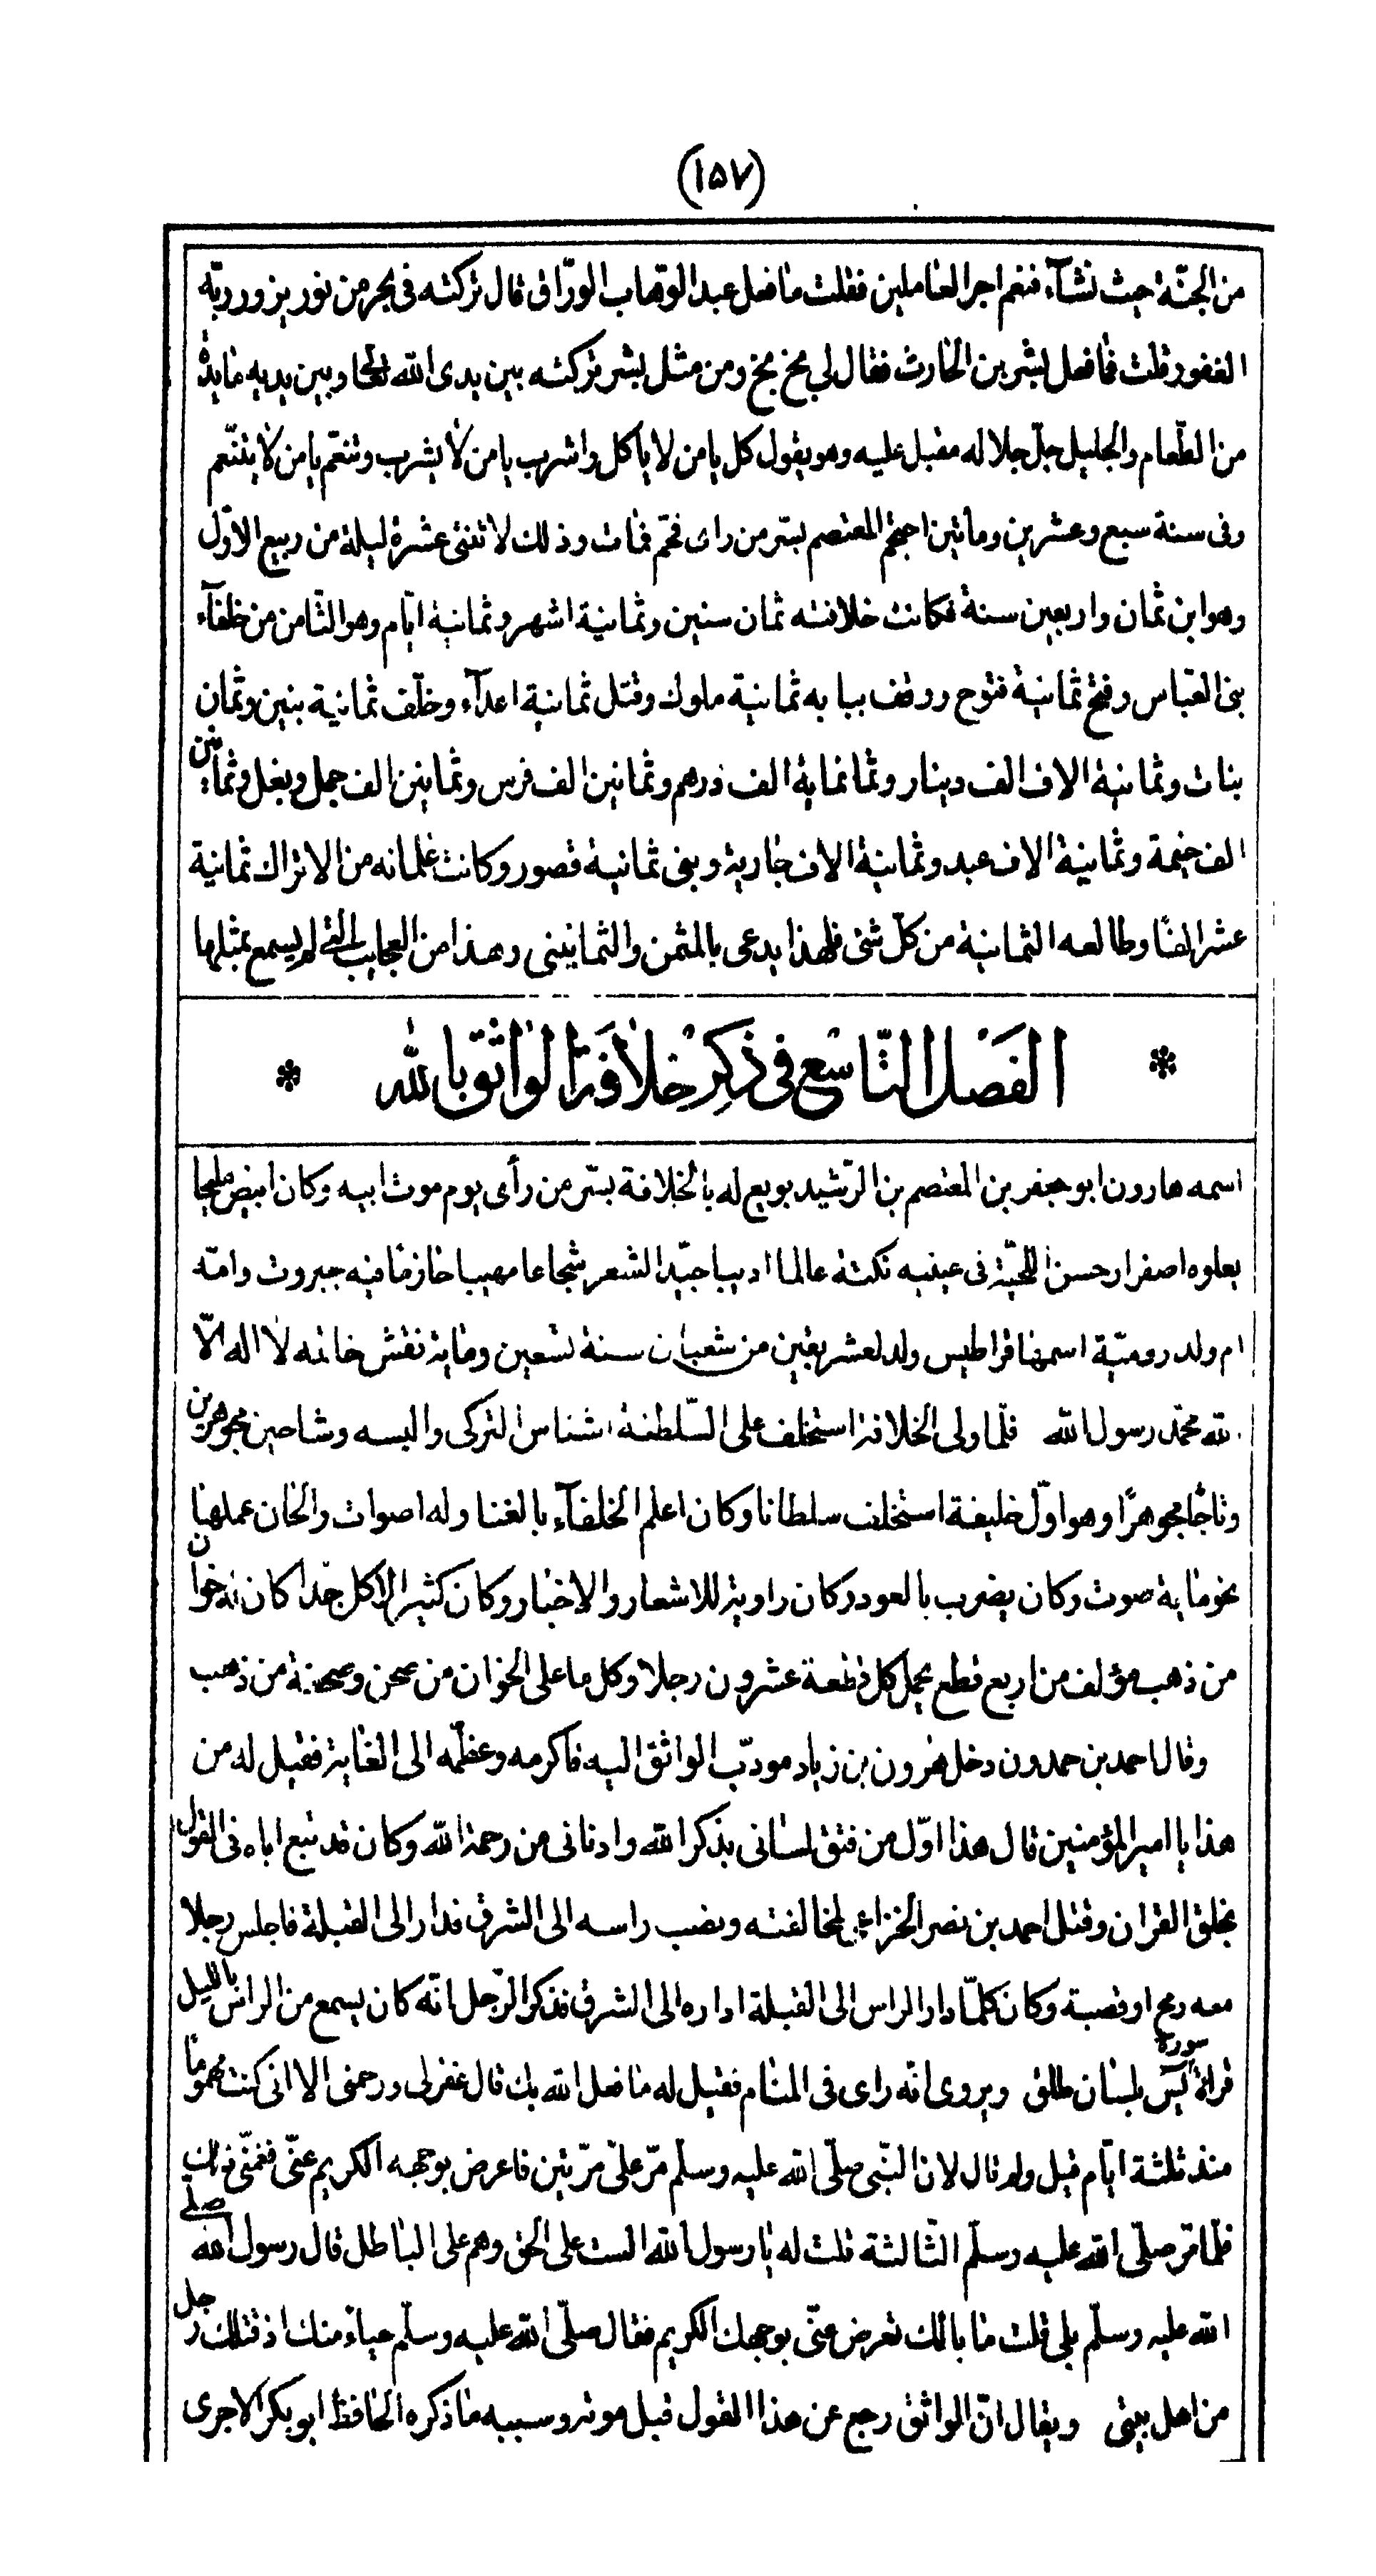 (١٥٧)
من الجنّة حيث نشآء فنعم اجر العاملين فقلت ما فعل عبد الوهّاب الورّاق قال تركته فى بحر من نور يزور ربّه
الغفور قلت فما فعل بشر بن الحارث فقال لى بخ بخ ومن مثل بشر تركته بين يدى الله تعالى وبين يديه مايدة
من الطّعام والجليل جلّ جلاله مقبل عليه وهو يقول كل يا من لا ياكل واشرب يا من لا يشرب وتنعّم يا من لا يتنعّم
وفى سنة سبع وعشرين ومأتين احتجم المعتصم بسّر من راى فحمّ فمات وذلك لاثنتى عشرة ليلة من ربيع الاوّل
وهو ابن ثمان واربعين سنة فكانت خلافته ثمان سنين وثمانية اشهر وثمانية ايّام وهو الثّامن من خلفآء
بنى العبّاس وفتح ثمانية فتوح ووقف ببابه ثمانية ملوك وقتل ثمانية اعدآء وخلّف ثمانية بنين وثمان
بنات وثمانية الاف الف دينار وثمانماية الف درهم وثمانين الف فرس وثمانين الف جمل وبغل وثمانين
الف خيمة وثمانية الاف عبد وثمانية الاف جارية وبنى ثمانية قصور وكانت غلمانه من الاتراك ثمانية
عشر الفًا وطالعه الثمانية من كلّ شئ فلهذا يدعى بالمثمن والثمانينى وهذا من العجايب التى لم يسمع بمثلها
* الفَصْل التّاسع فى ذَكِرْ خلافَة الواثق بالله *
اسمه هارون ابو جعفر بن المعتصم بن الرّشيد بويع له بالخلافة بسّر من رأى يوم موت ابيه وكان ابيض مليحا
يعلوه اصفرار حسن اللّحية فى عينيه نكتة عالما اديبا جيّد الشعر شجاعا مهيبا حازما فيه جبروت وامّه
ام ولد روميّة اسمها قراطيس ولد لعشر بقين من شعبان سنة تسعين وماية نقش خاتمه لا اله الّا
الله محمّد رسول الله فلّما ولى الخلافة استخلف على السّلطنة اشناس التركى والبسه وشاحين مجوهرين
وتاجًا مجوهرًا وهو اوّل خليفة استخلف سلطانا وكان اعلم الخلفآء بالغنا وله اصوات والحان عملها
نحو ماية صوت وكان يضرب بالعود وكان راوية للاشعار والاخبار وكان كثير الاكل جدّا كان له خوان
من ذهب مؤلف من اربع قطع يحمل كل قطعة عشرون رجلا وكل ما على الخوان من صحن وصحنة من ذهب
وقال احمد بن حمدون دخل هرون بن زياد مودّب الواثق اليه فاكرمه وعظّمه الى الغاية فقيل له من
هذا يا امير المؤمنين قال هذا اوّل من فتق لسانى بذكر الله وادنانى من رحمة الله وكان قد تبع اباه فى القول
بخلق القران وقتل احمد بن نصر الخزاعى لمخالفته ونصب راسه الى الشرق فدار الى القبلة فاجلس رجلا
معه رمح او قصبة وكان كلّما دار الراس الى القبلة اداره الى الشرق فذكر الرّجل انّه كان يسمع من الراس بالليل
قراة سورة يس بلسان طلق ويروى انّه راى فى المنام فقيل له ما فعل الله بك قال غفر لى ورحمنى الا انى كنت مهمومًا
منذ ثلثة ايّام قيل ولم قال لان النّبى صلّى الله عليه وسلّم مرّ علىّ مرّتين فاعرض بوجهه الكريم عنّى فغمّنى ذلك
فلّما مرّ صلّى الله عليه وسلّم الثّالثة قلت له يا رسول الله الست على الحق وهم على الباطل قال رسول الله صلى
الله عليه وسلّم بلى قلت ما بالك تعرض عنّى بوجهك الكريم فقال صلّى الله عليه وسلّم حياء منك اذ قتلك رجل
من اهل بيتى ويقال انّ الواثق رجع عن هذا القول قبل موته وسببه ما ذكره الحافظ ابو بكر الاجرى